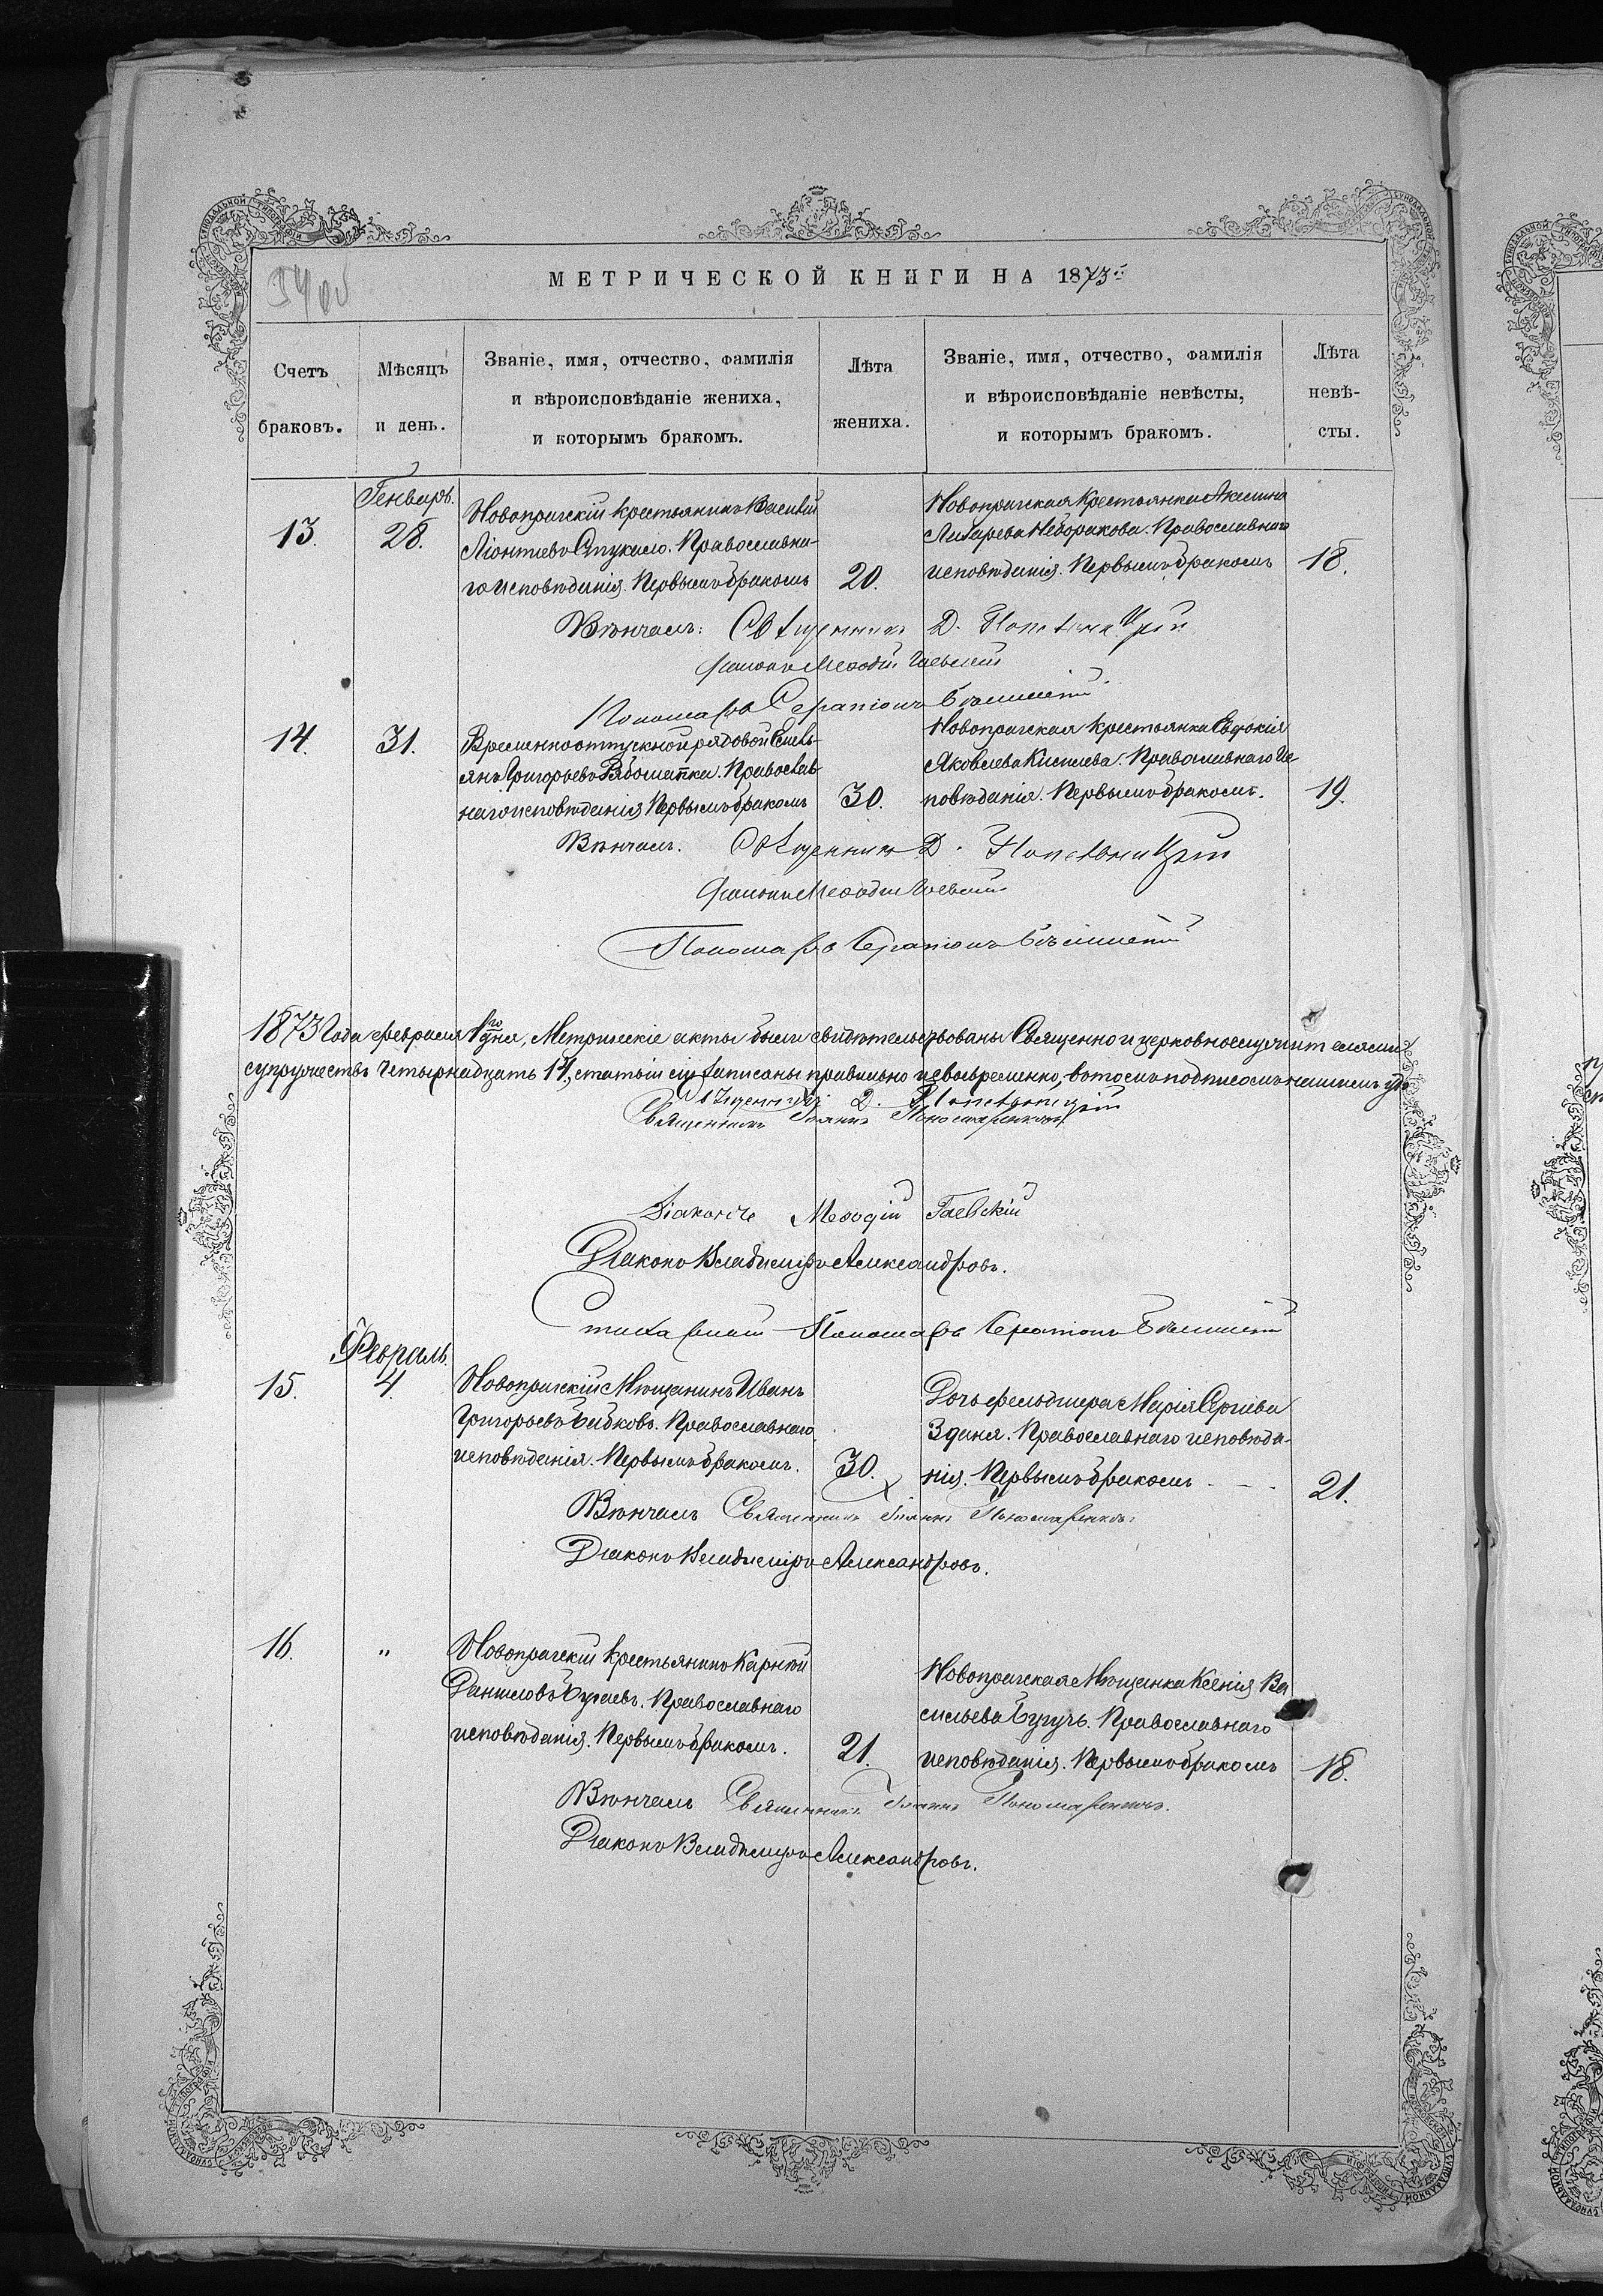 МЕТРИЧЕСКОЙ КНИГИ НА 1873
Счетъ браковъ.
Мѣсяцъ и день.
Званіе, имя, отчество, фамилія
и вѣроисповѣданіе жениха,
и которымъ бракомъ.
Лѣта
жениха.
Званіе, имя, отчество, фамилія
и вѣроисповѣданіе невѣсты,
и которымъ бракомъ.
Лѣта
невѣ-
сты.
Генварь.
13.
28.
Новопражскій крестьянинъ Василій
Ліонтіевъ Стукало. Православна-
го исповѣданія. Первымъ бракомъ
20.
Новопражская Крестьянка Акилина
Православнаго
исповѣданія. Первымъ бракомъ
18.
Вѣнчалъ: Священникъ Д.
Діаконъ Меѳодій Гаевскій
Пономарь Серапіонъ
14.
31.
Временноотпускной рядовой Емель-
янъ Григорьевъ Рябошапка. Православ-
наго исповѣданія Первымъ бракомъ
30.
Новопражская крестьянка Евдокія
Яковлева Киселева. Православнаго Ис-
повѣданія. Первымъ бракомъ.
19.
Вѣнчалъ. Священникъ Д.
Діаконъ Меѳодій Гаевскій
Пономарь Серапіонъ
1873 Года февраля 1го дня, Метрическіе акты были свидѣтельствованы Священно и церковнослужителями
супружествъ четырнадцать 14, статьи сіи записаны правильно и своевременно, въ томъ подписомъ нашимъ удо
Священникъ Д.
Священникъ Іоаннъ Пономаренковъ
Діаконъ Меѳодій Гаевскій
Діаконъ Владиміръ Александровъ.
Стихарный Пономарь Серапіонъ
Февраль.
15.
4
Новопражскій Мѣщанинъ Иванъ
Григорьевъ Бибковъ. Православнаго
исповѣданія. Первымъ бракомъ.
30.
Дочь фельдшера Марія Сергіева
Зданя. Православнаго исповѣда-
нія. Первымъ бракомъ - - -
21.
Вѣнчалъ Священникъ Іоаннъ Пономаренковъ
Діаконъ Владиміръ Александровъ.
16.
"
Новопражскій крестьянинъ Карнѣй
Даниловъ Бугаевъ. Православнаго
исповѣданія. Первымъ бракомъ.
21.
Новопражская Мѣщанка Ксенія Ва
сильева Бугучъ. Православнаго
исповѣданія. Первымъ бракомъ
18.
Вѣнчалъ Священникъ Іоаннъ Пономаренковъ.
Діаконъ Владиміръ Александровъ.